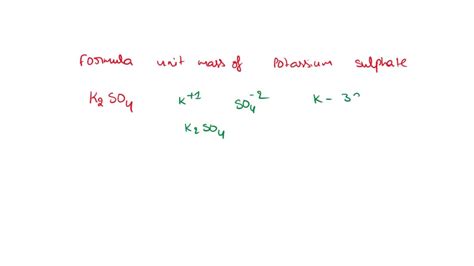 Formula unit mass of Potassium sulphate
K₂SO₄ K⁺¹ SO₄⁻² K - 3
K₂SO₄